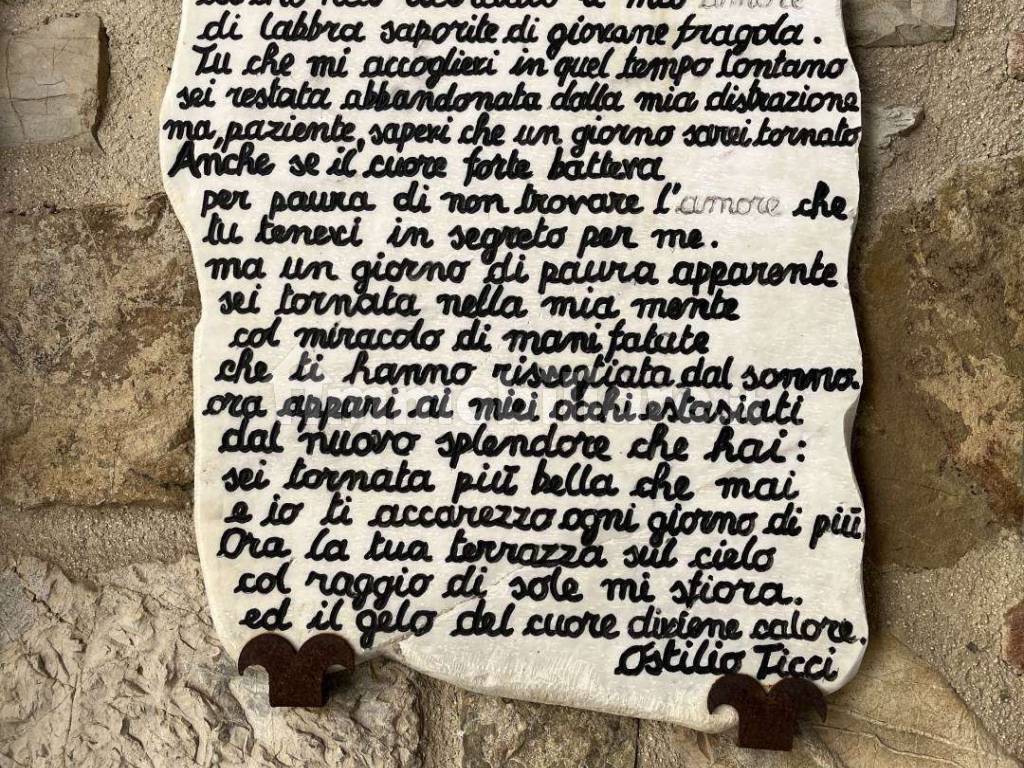 mio amore
di labbra saporite di giovane fragola.
Tu che mi accoglievi in quel tempo lontano
sei restata abbandonata dalla mia distrazione
ma, paziente, sapevi che un giorno sarei tornato
Anche se il cuore forte batteva
per paura di non trovare l'amore che
tu tenevi in segreto per me.
ma un giorno di paura apparente
sei tornata nella mia mente
col miracolo di mani fatate
che ti hanno risvegliata dal sonno.
ora appari ai miei occhi estasiati
dal nuovo splendore che hai:
sei tornata più bella che mai
e io ti accarezzo ogni giorno di più
Ora la tua terrazza sul cielo
col raggio di sole mi sfiora.
ed il gelo del cuore diviene calore.
Ostilio Ticci